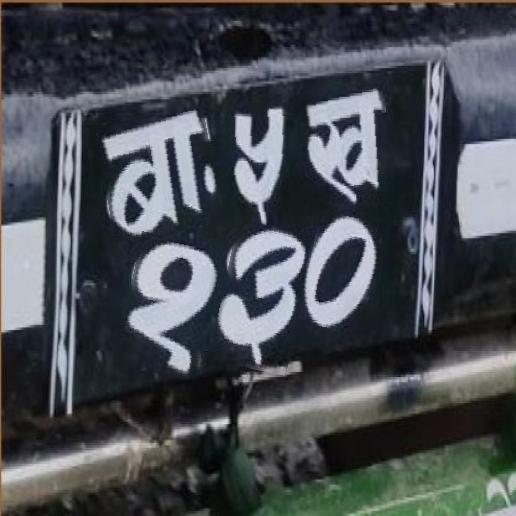 बा. ५ ख
१३०